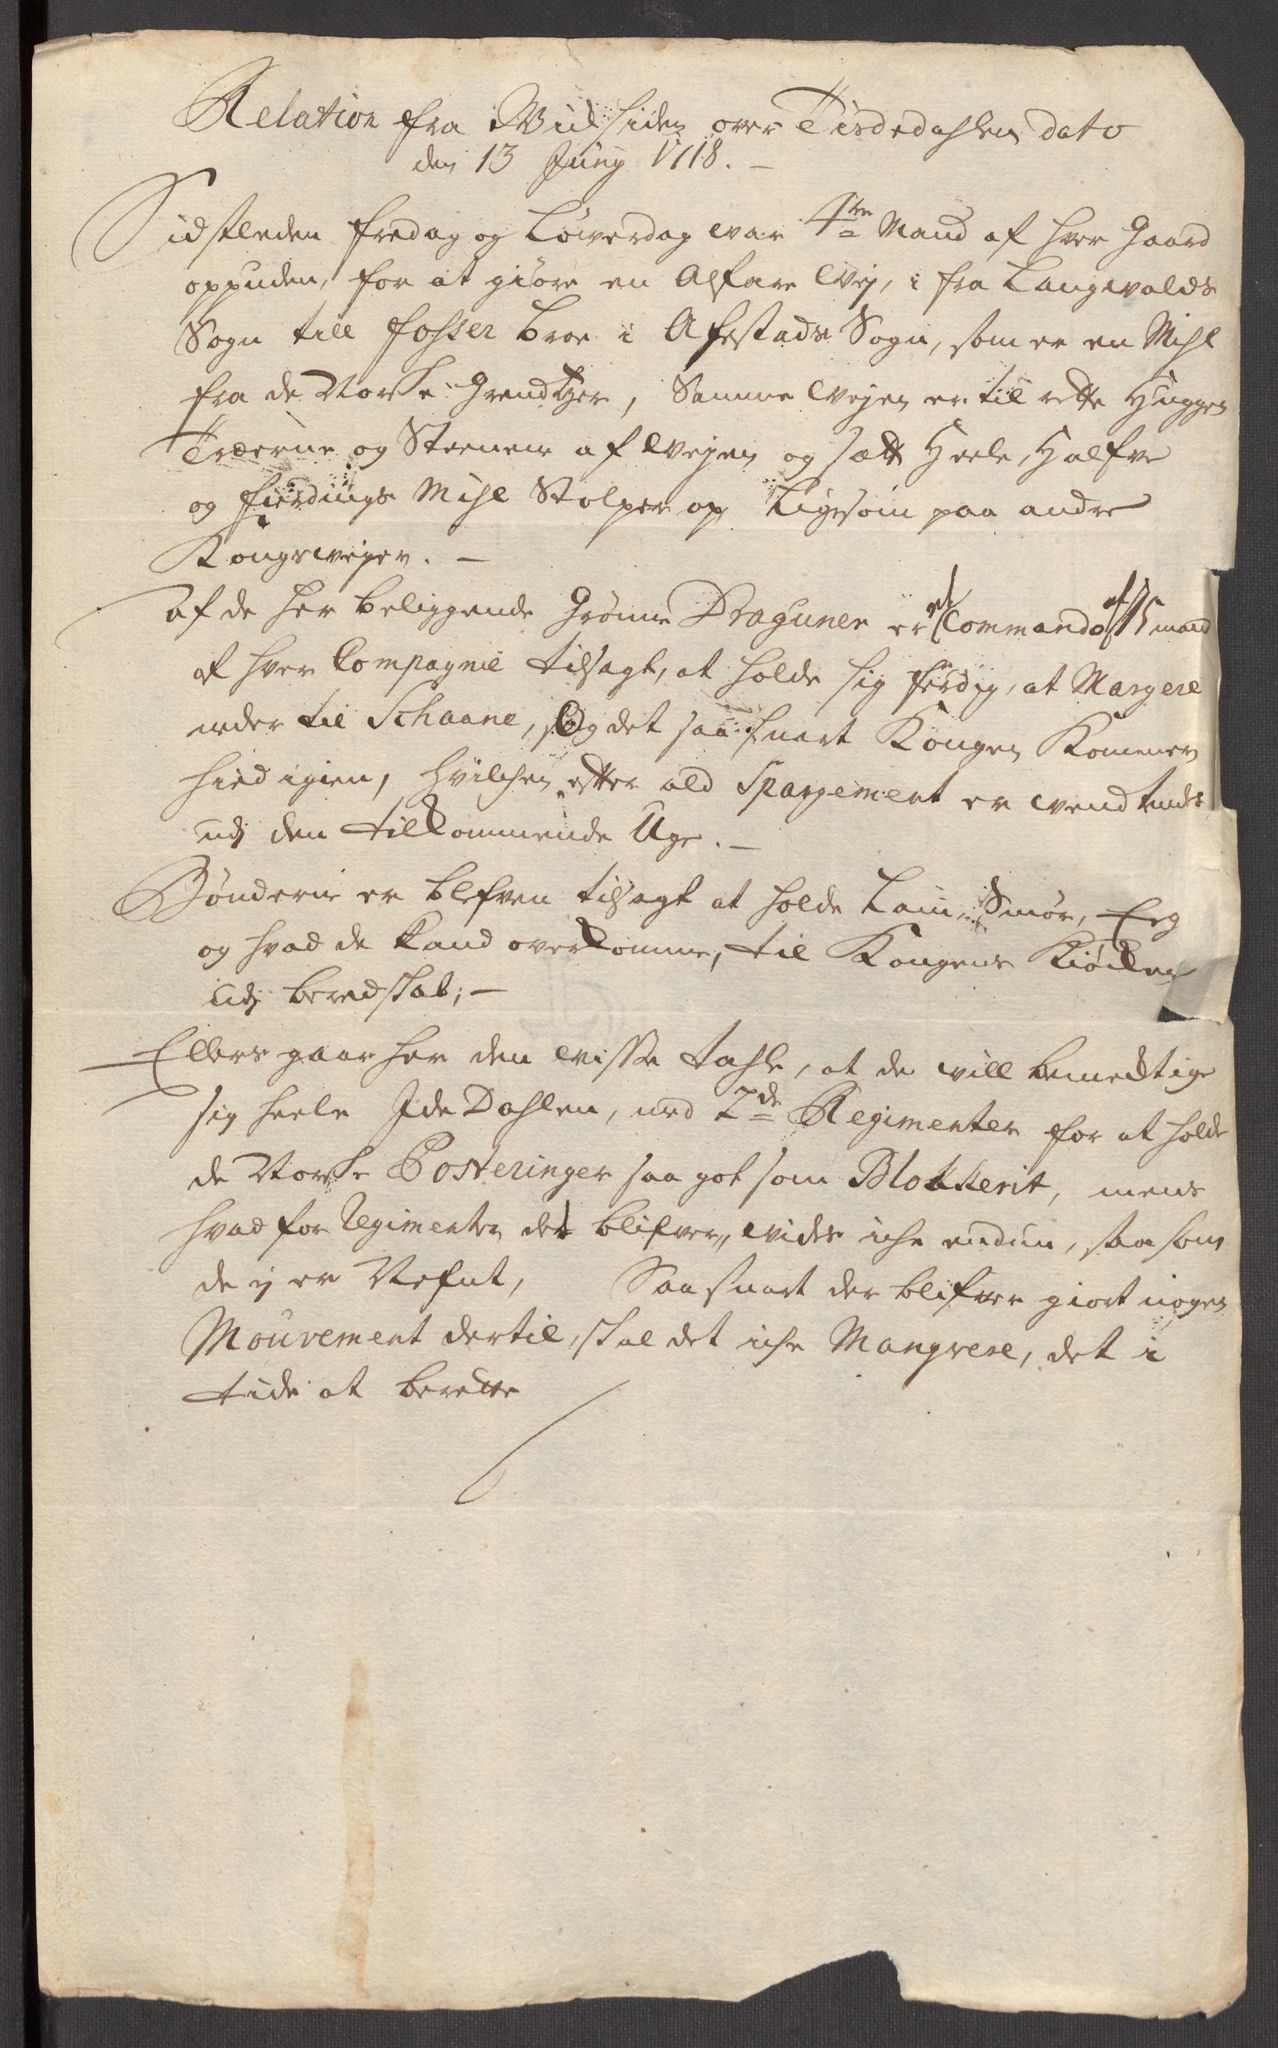 Relation fra Wudsiden over Tisdedahlen dato
den 13 Juny 1718. —
Sidstleden fredag og Løwerdag war 4re Mand af hver Gaard
oppuden, for at giøre en Alfare Wej, i fra Langwalds
Sogn till fosser broe i Afvestads Sogn, som er en Mihl
fra de Norske Grendtzer, Samme Wejen er til rette Huggen
Træerne og Steenene af Wejen og satt Heele, Halfve
og fierdings Mihl Stolper op Ligesom paa andre
Kongsweyer. —
Af de her beliggende Grønne Draguner er et Commando af 15 mand
af hver Compagnie tilsagt, at holde sig ferdig, at Margere
neder til Schaane, Og det saa snart Kongen Kommer
hid igien, hvilchen efter ald Spargement er wendtendes
udj den tilkommende Uge. —
Bønderne er blefven tilsagt at holde Lam, Smør, Eeg
og hvad de kand overkomme, til Kongens Kiøcken
udj beredskab; —
Ellers gaar her den wisse tahle, at de will bemectige
sig heele Ide Dahlen, med 2de Regimenter for at holde
de Norske Posteringer saa got som Blokkerit, mens
hvad for Regimenter det blifver, wides iche endnu, saasom
de ej er Nefnt, Saa snart der blifver giort nogen
Mouvement dertil, skal det iche Mangvere, det i
tide at berette